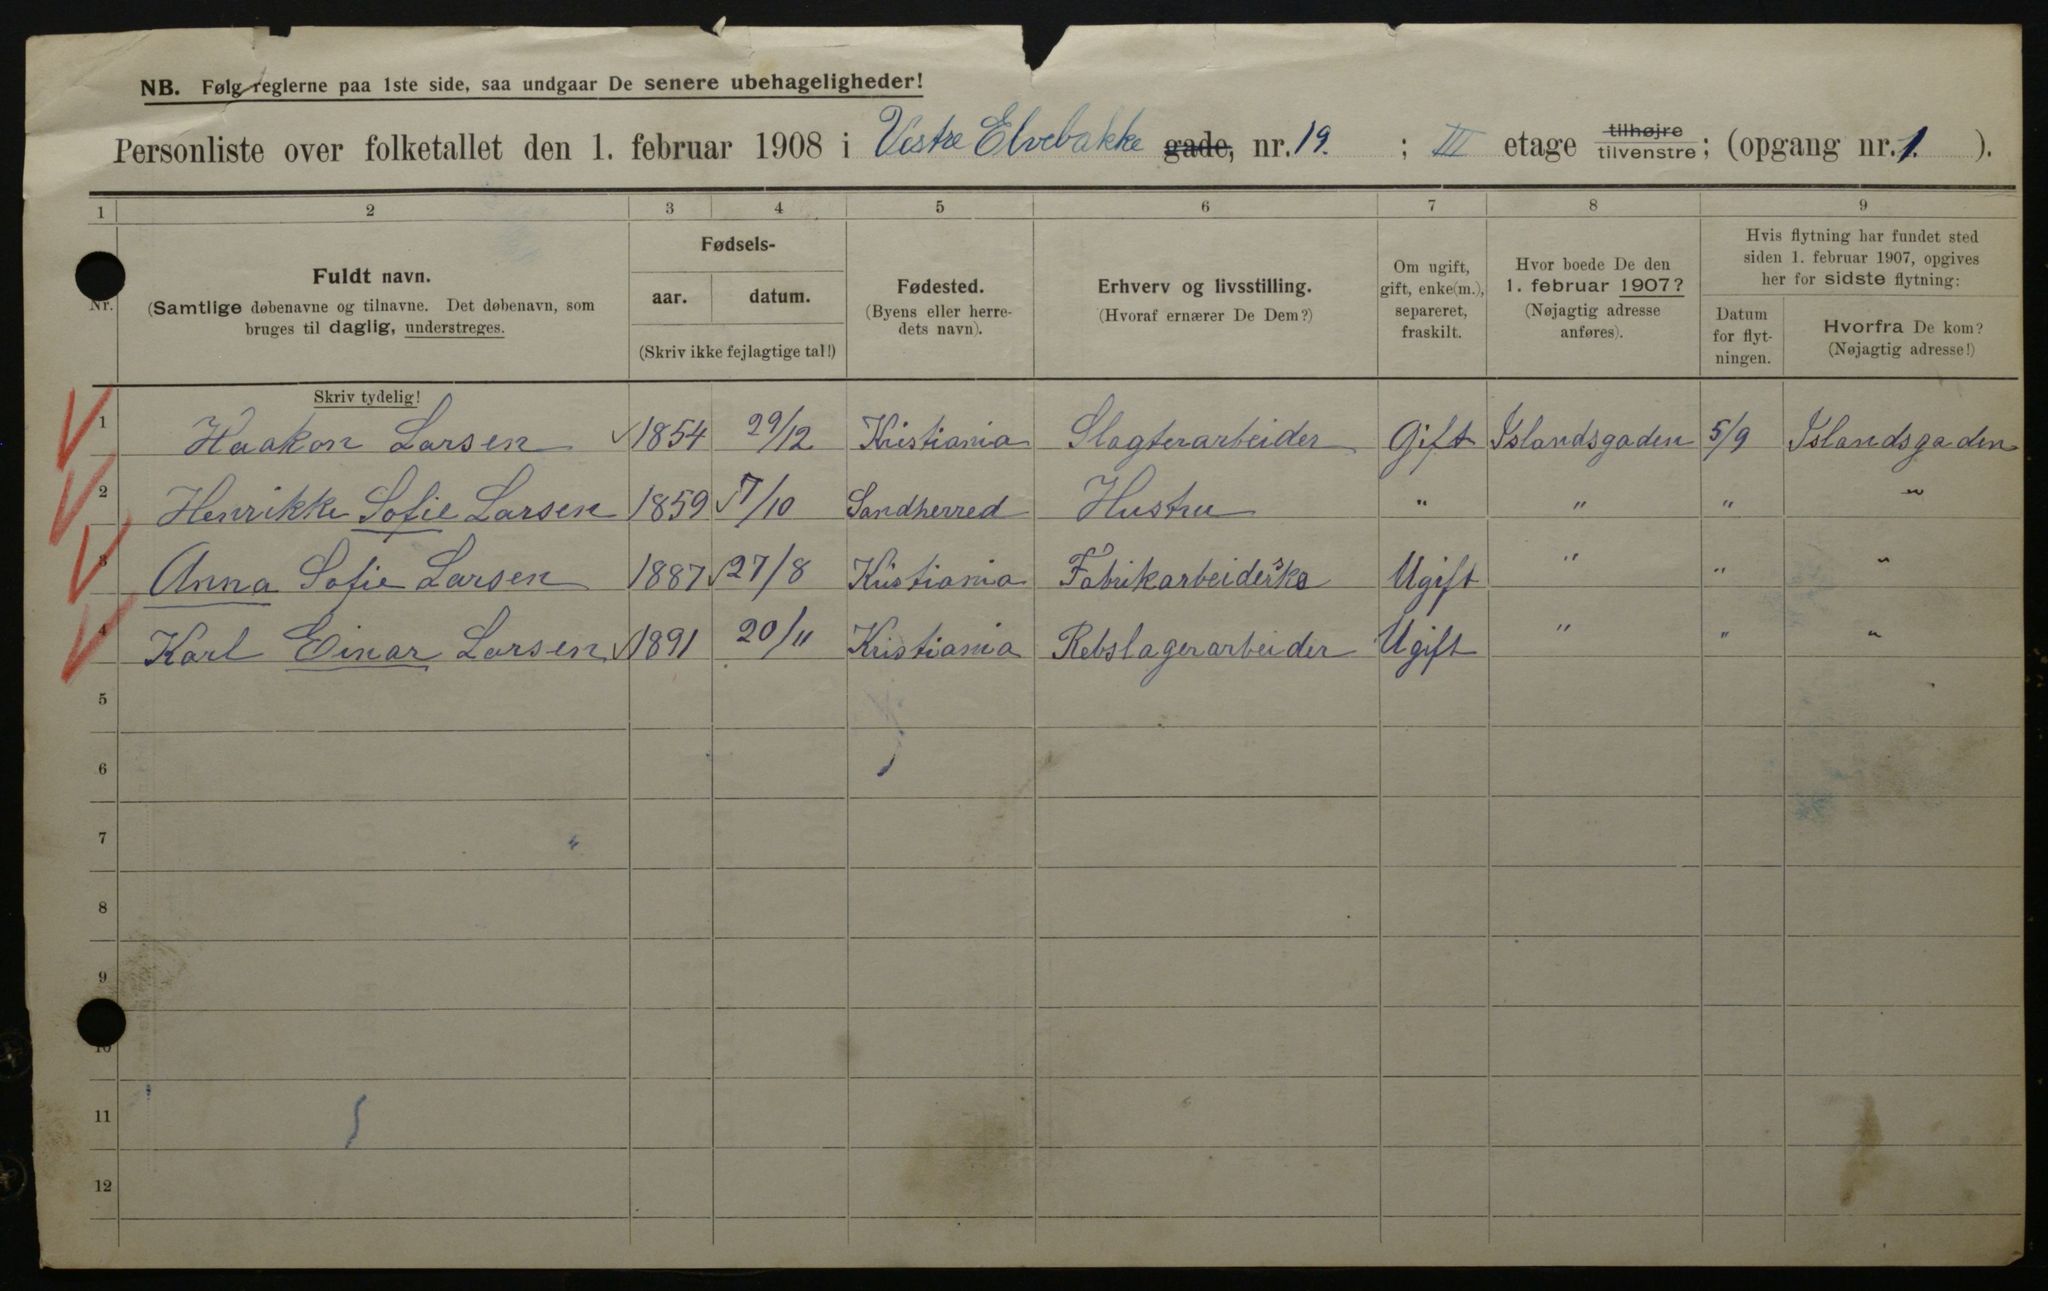 NB. Følg reglerne paa 1ste side, saa undgaar De senere ubehageligheder!
Personliste over folketallet den 1. februar 1908 i Vestre Elvebakke gade, nr. 19. ; III etage tilhøjre tilvenstre; (opgang nr. 1. ).
1 2 3 4 5 6 7 8 9
Nr.
Fuldt navn.
(Samtlige døbenavne og tilnavne. Det døbenavn, som
bruges til daglig, understreges.
Skriv tydelig!
Fødsels-
aar. datum.
(Skriv ikke fejlagtige tal!)
Fødested.
(Byens eller herre-
dets navn).
Erhverv og livsstilling.
(Hvoraf ernærer De Dem?)
Om ugift,
gift, enke(m.),
separeret,
fraskilt.
Hvor boede De den
1. februar 1907?
(Nøjagtig adresse
anføres).
Hvis flytning har fundet sted
siden 1. februar 1907, opgives
her for sidste flytning:
Datum
for flyt-
ningen.
Hvorfra De kom?
(Nøjagtig adresse!)
1 Haakon Larsen 1854 29/12 Kristiania Slagterarbeider Gift Islandsgaden 5/9 Islandsgaden
2 Henrikke Sofie Larsen 1859 7/10 Sandherred Hustru " " " "
3 Anna Sofie Larsen 1887 27/8 Kristiania Fabrikarbeiderske Ugift " " "
4 Karl Einar Larsen 1891 20/11 Kristiania Rebslagerarbeider Ugift " " "
5
6
7
8
9
10
11
12